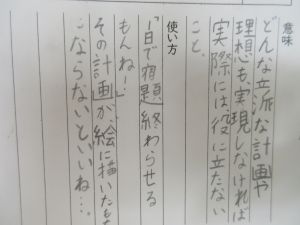 意味
どんな立派な計画や
理想も、実現しなければ
実際には、役に立たない
こと。
使い方
「一日で宿題終わらせる
もんね…」
その計画が、絵に描いたも
ならないといいね…。